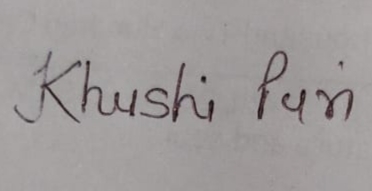 Khushi Puri